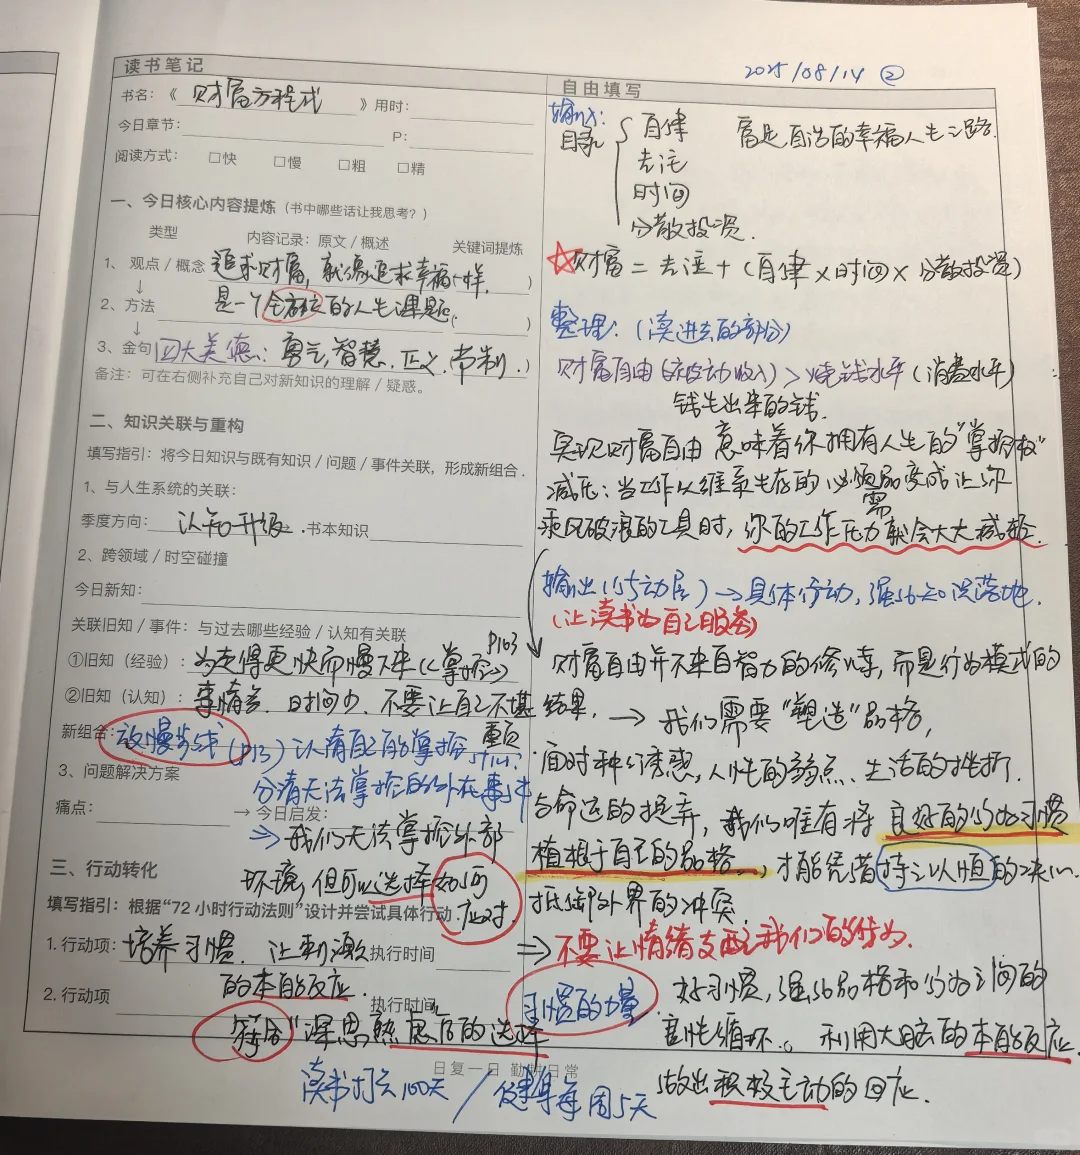 2025/08/14 ②
读书笔记
书名：《 财富方程式 》用时：
今日章节： P：
阅读方式： □快 □慢 □粗 □精
一、今日核心内容提炼（书中哪些话让我思考？）
类型 内容记录：原文 / 概述 关键词提炼
1、 观点 / 概念 追求财富，就像追求幸福一样， ）
↓
2、方法 是一个全方位的人生课题。( ）
↓
3、金句 四大美德：勇气，智慧．正义．节制．）
备注：可在右侧补充自己对新知识的理解 / 疑惑。
二、知识关联与重构
填写指引：将今日知识与既有知识 / 问题 / 事件关联，形成新组合．
1、与人生系统的关联：
季度方向： 认知升级 ．书本知识
2、跨领域 / 时空碰撞
今日新知：
关联旧知 / 事件：与过去哪些经验 / 认知有关联
P103
①旧知（经验）：为走得更快而慢下来《掌控》
②旧知（认知）：事情多．时间少．不要让自己不堪
重负
新组合：放慢步伐(P13) 认清自己的掌控
分清无法掌控的外在事件
3、问题解决方案
痛点： → 今日启发：
⇒ 我们无法掌控外部
环境，但可以选择如何
应对．
三、行动转化
填写指引：根据“72 小时行动法则”设计并尝试具体行动．
1. 行动项：培养习惯．让刺激 执行时间
的本能反应．
2. 行动项 执行时间
符合“深思熟虑”后的选择
日复一日 勤耕日常
读书打卡100天 / 健身每周5天
自由填写
输入：
目录 { 自律 富足自洽的幸福人生之路．
专注
时间
分散投资．
☆财富 = 专注 + (自律 × 时间 × 分散投资)
整理：(读进去的部分)
财富自由（被动收入）> 烧钱水平 (消费水平)
钱生出来的钱．
实现财富自由 意味着你拥有人生的“掌控权”
减压：当工作从维系生存的必需品变成让你
乘风破浪的工具时，你的工作压力就会大大减轻．
输出(行动层) → 具体行动，强化知识落地．
(让读书为自己服务)
财富自由并不来自智力的修炼，而是行为模式的
结果． → 我们需要“塑造”品格，
面对种种诱惑，人性的弱点、生活的挫折．
与命运的捉弄，我们唯有将 良好的行为习惯
植根于自己的品格，才能凭借持之以恒的决心．
抵御外界的冲突．
⇒ 不要让情绪支配我们的行为．
习惯的力量 好习惯，强化品格和行为之间的
良性循环。 利用大脑的本能反应．
做出积极主动的回应．